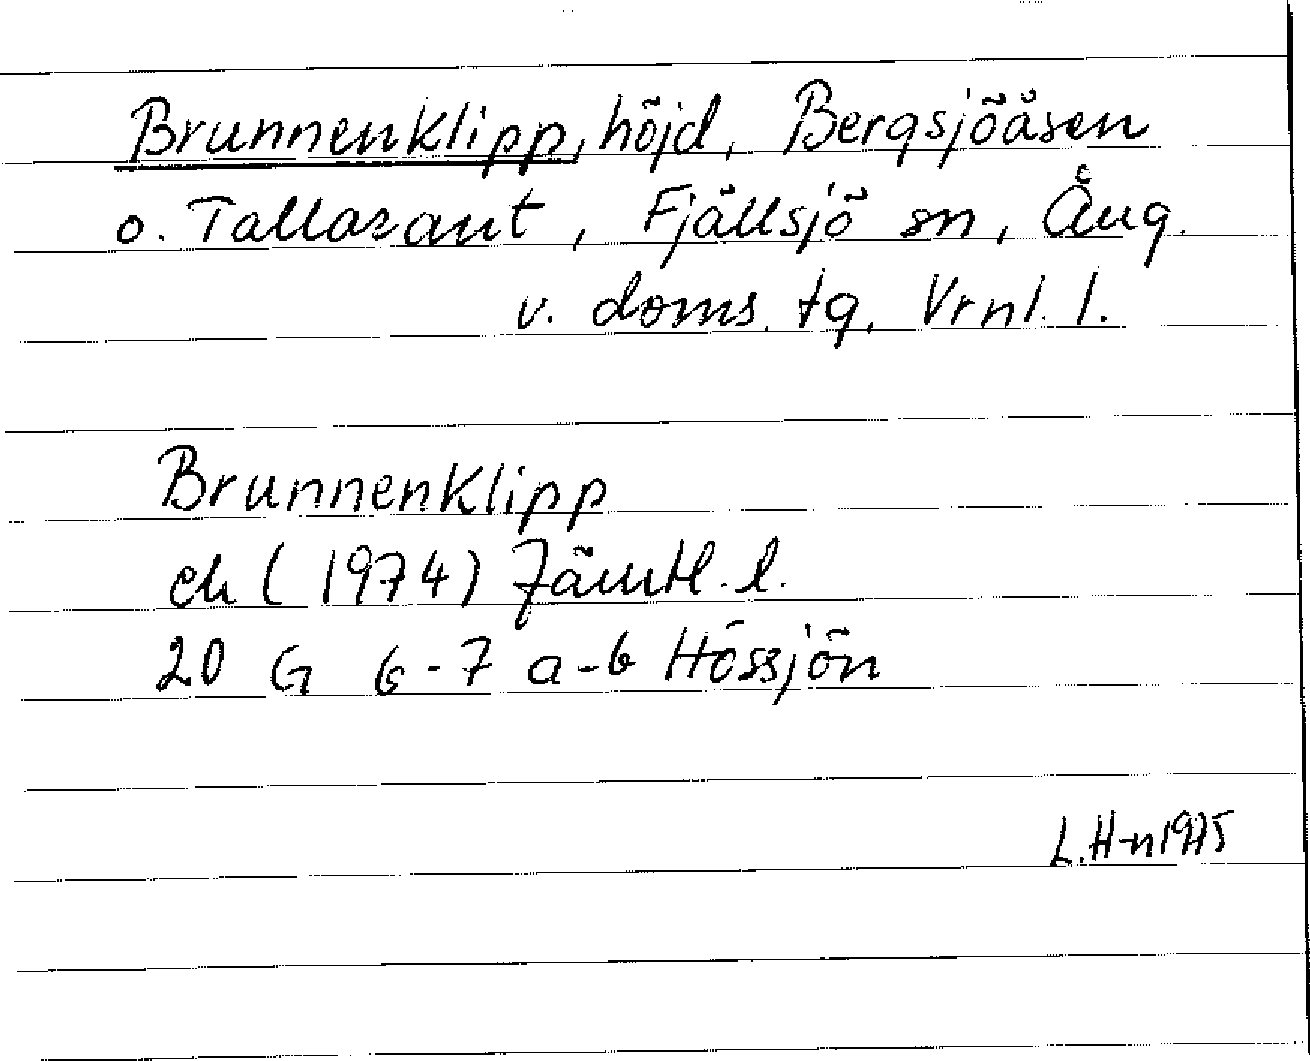 Brunnenklipp, höjd, Bergsjöåsen
o. Tallarant, Fjällsjö sn, Ång.
v. doms. tg, Vrnl. l.
Brunnenklipp
ek (1974) Jämtl. l.
20 G 6-7 a-b Hössjön
L. H-n 1975